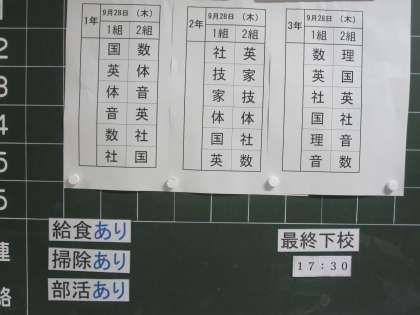 1年 9月28日 (木)
1組 2組
国 数
英 体
体 音
音 英
数 社
社 国
2年 9月28日 (木)
1組 2組
社 英
技 家
家 技
体 体
国 社
英 数
3年 9月28日 (木)
1組 2組
数 理
英 国
社 英
国 社
理 音
音 数
2
3
4
5
5
連
絡
給食あり
掃除あり
部活あり
最終下校
17:30